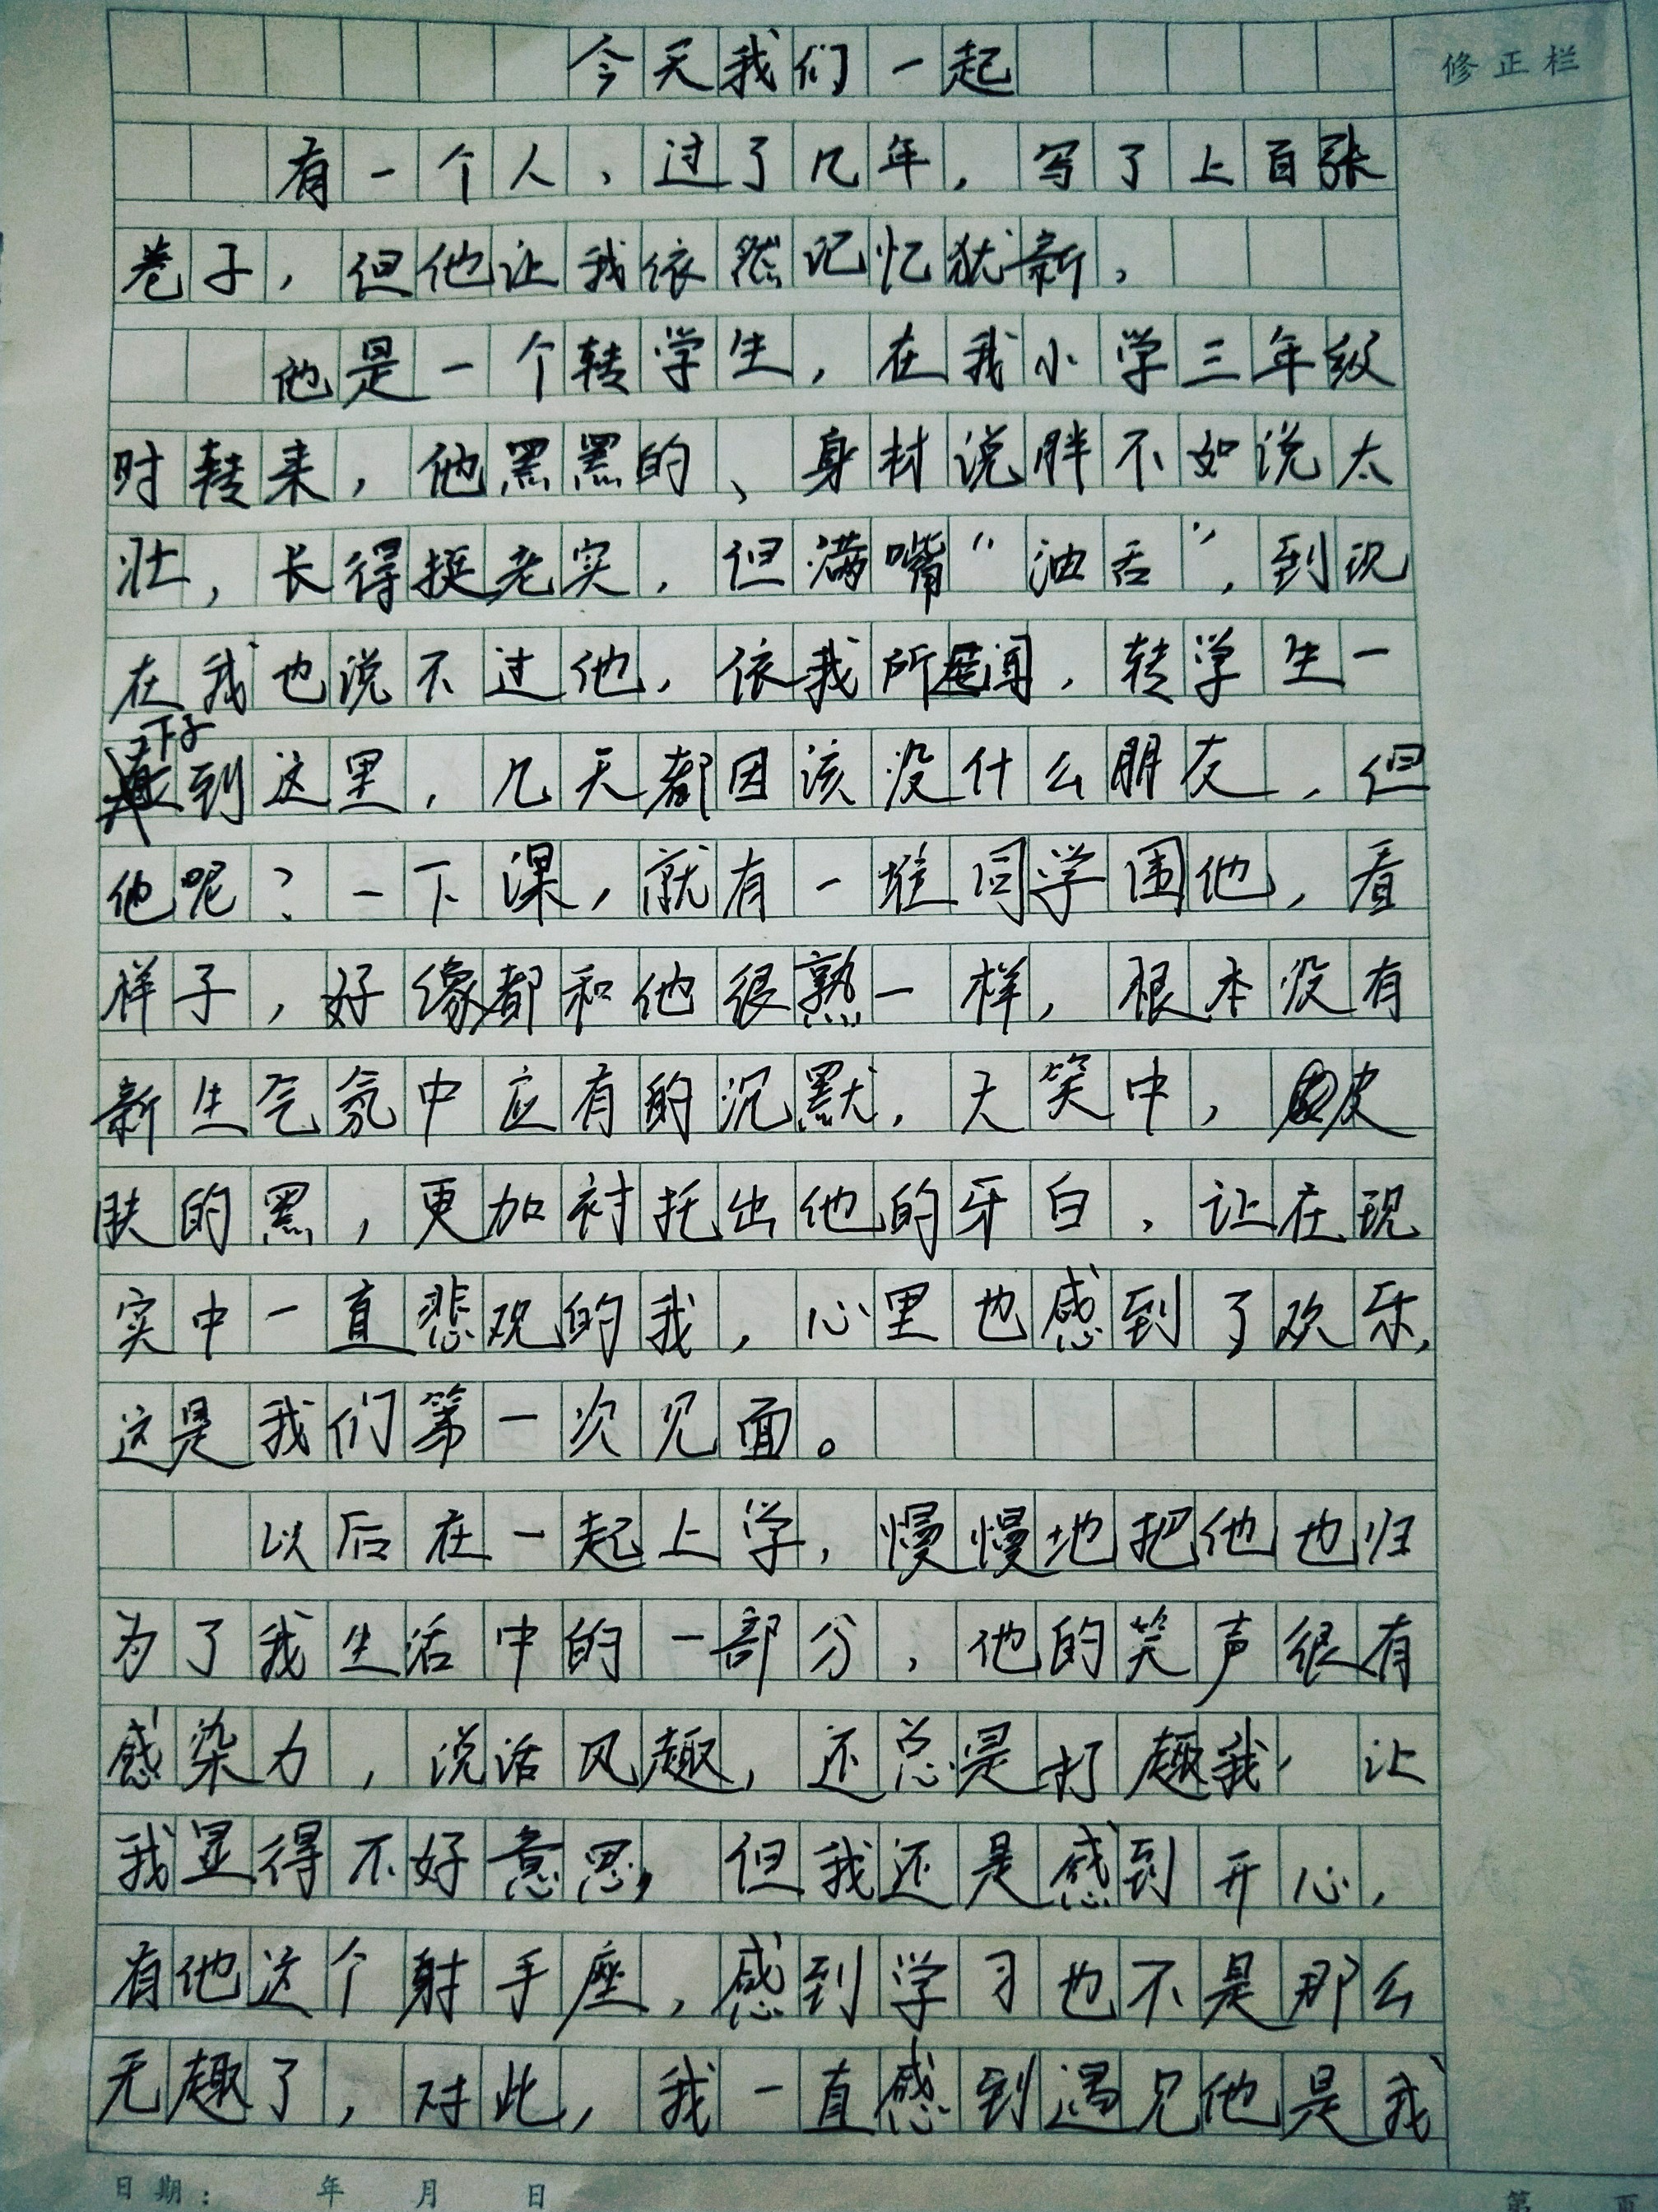 今天我们一起
修正栏
有一个人，过了几年，写了上百张
卷子，但他让我依然记忆犹新，
他是一个转学生，在我小学三年级
时转来，他黑黑的、身材说胖不如说太
壮，长得挺老实，但满嘴“油舌”，到现
在我也说不过他，依我所闻，转学生一
下子到这里，几天都因该没什么朋友，但
他呢？一下课，就有一堆同学围他，看
样子，好像都和他很熟一样，根本没有
新生气氛中应有的沉默，大笑中，皮
肤的黑，更加衬托出他的牙白，让在现
实中一直悲观的我，心里也感到了欢乐，
这是我们第一次见面。
以后在一起上学，慢慢地把他也归
为了我生活中的一部分，他的笑声很有
感染力，说话风趣，还总是打趣我，让
我显得不好意思，但我还是感到开心，
有他这个射手座，感到学习也不是那么
无趣了，对此，我一直感到遇见他是我
日期：　年　月　日
第　页